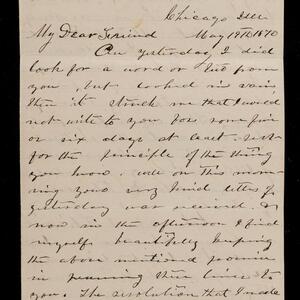 Chicago Ills
My Dear Friend May 19th 1870
On yesterday I did
look for a word or two from
you, but looked in vain,
then it struck me that I would
not write to you for some five
or six days at least. Just
for the principle of the thing
you know. Well on this mor-
ning your very kind letter of
yesterday was received, &
now in the afternoon I find
myself beautifully keeping
the above mentioned promise
in penning these lines to
you. The resolution that I made